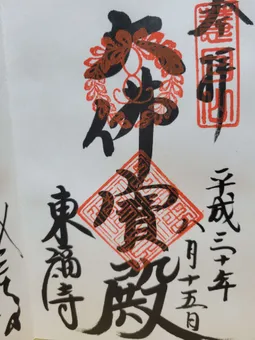 奉拝
平成三十年
八月十五日
大佛寳殿
東福寺